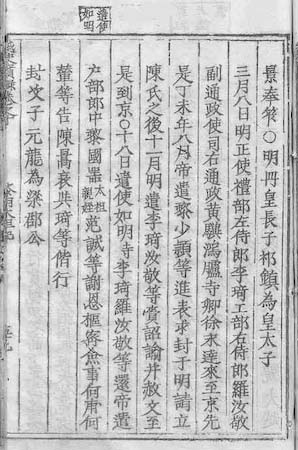 遣使如明
景奉○明冊皇長子祁鎮為皇太子
三月八日明正使禮部左侍郎李琦工部右侍郎羅汝敬
副通政使司右通政黃驥鴻臚寺卿徐永達來至京先
是丁未年八月帝遣黎少頴等進表求封于明請立
陳氏之後十一月明遣李琦羅汝敬等賫詔諭并赦文至
是到京○十八日遣使如明寺李琦羅汝敬等還帝遣
户部郎中黎國器太祖范誠等謝恩樞密僉事何甫何
董等告陳暠喪共琦等偕行
封次子元龍為梁郡公